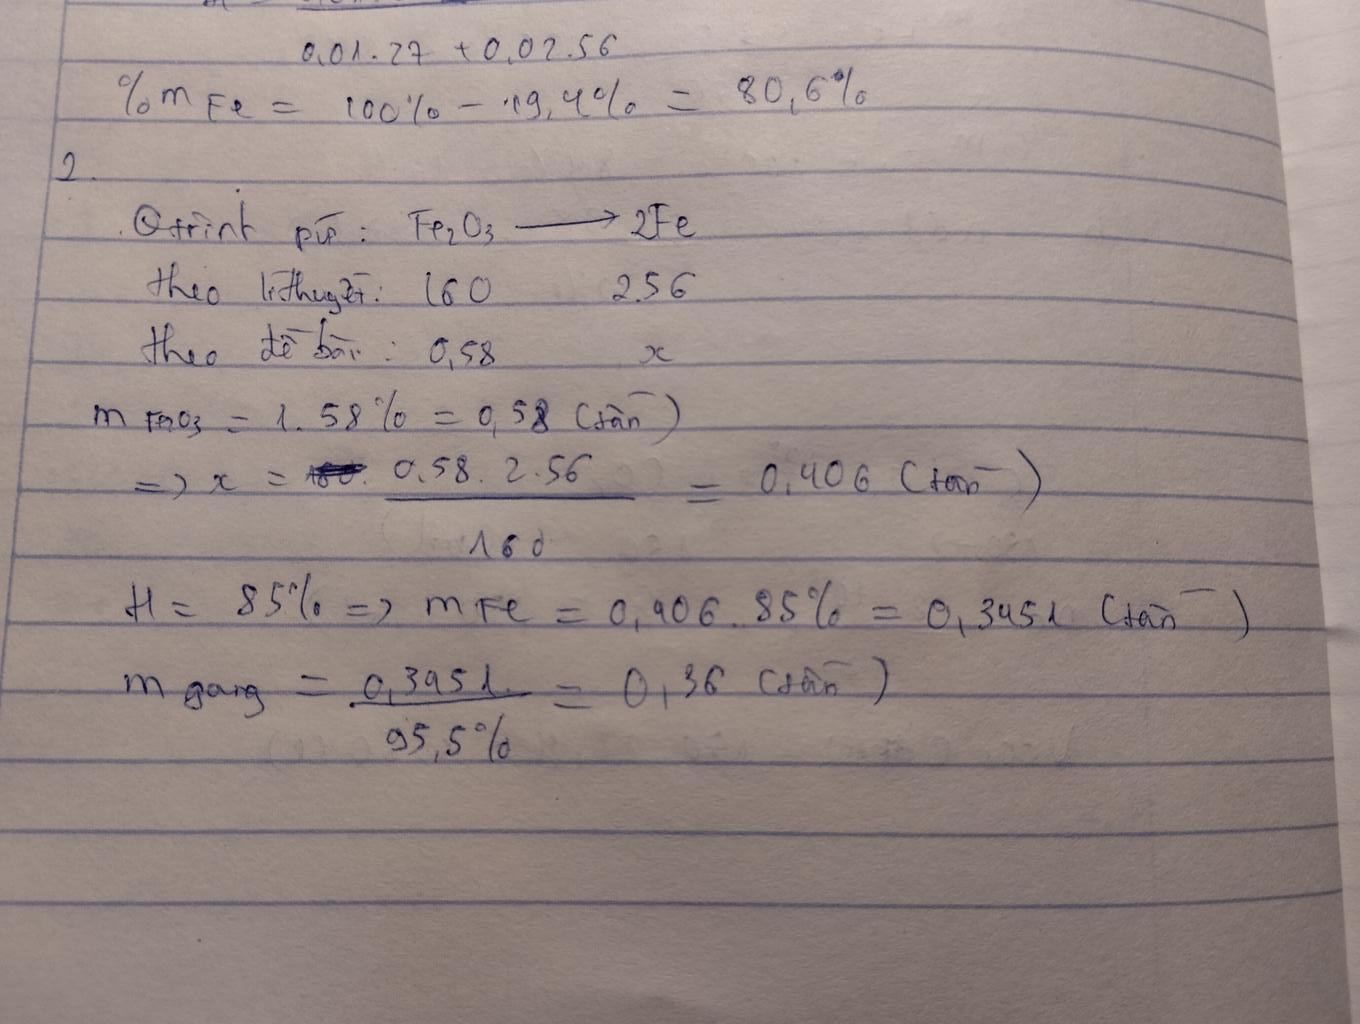 0,01.27 + 0,02.56
%m Fe = 100% - 19,4% = 80,6%
2.
Qtrình pứ: Fe2O3 → 2Fe
theo lí thuyết: 160 2.56
theo đề bài: 0,58 x
m Fe2O3 = 1.58% = 0,58 (tấn)
=> x = 0,58.2.56 = 0,406 (tấn)
160
H = 85% => mFe = 0,406.85% = 0,3451 (tấn)
m gang = 0,3451 = 0,36 (tấn)
95,5%